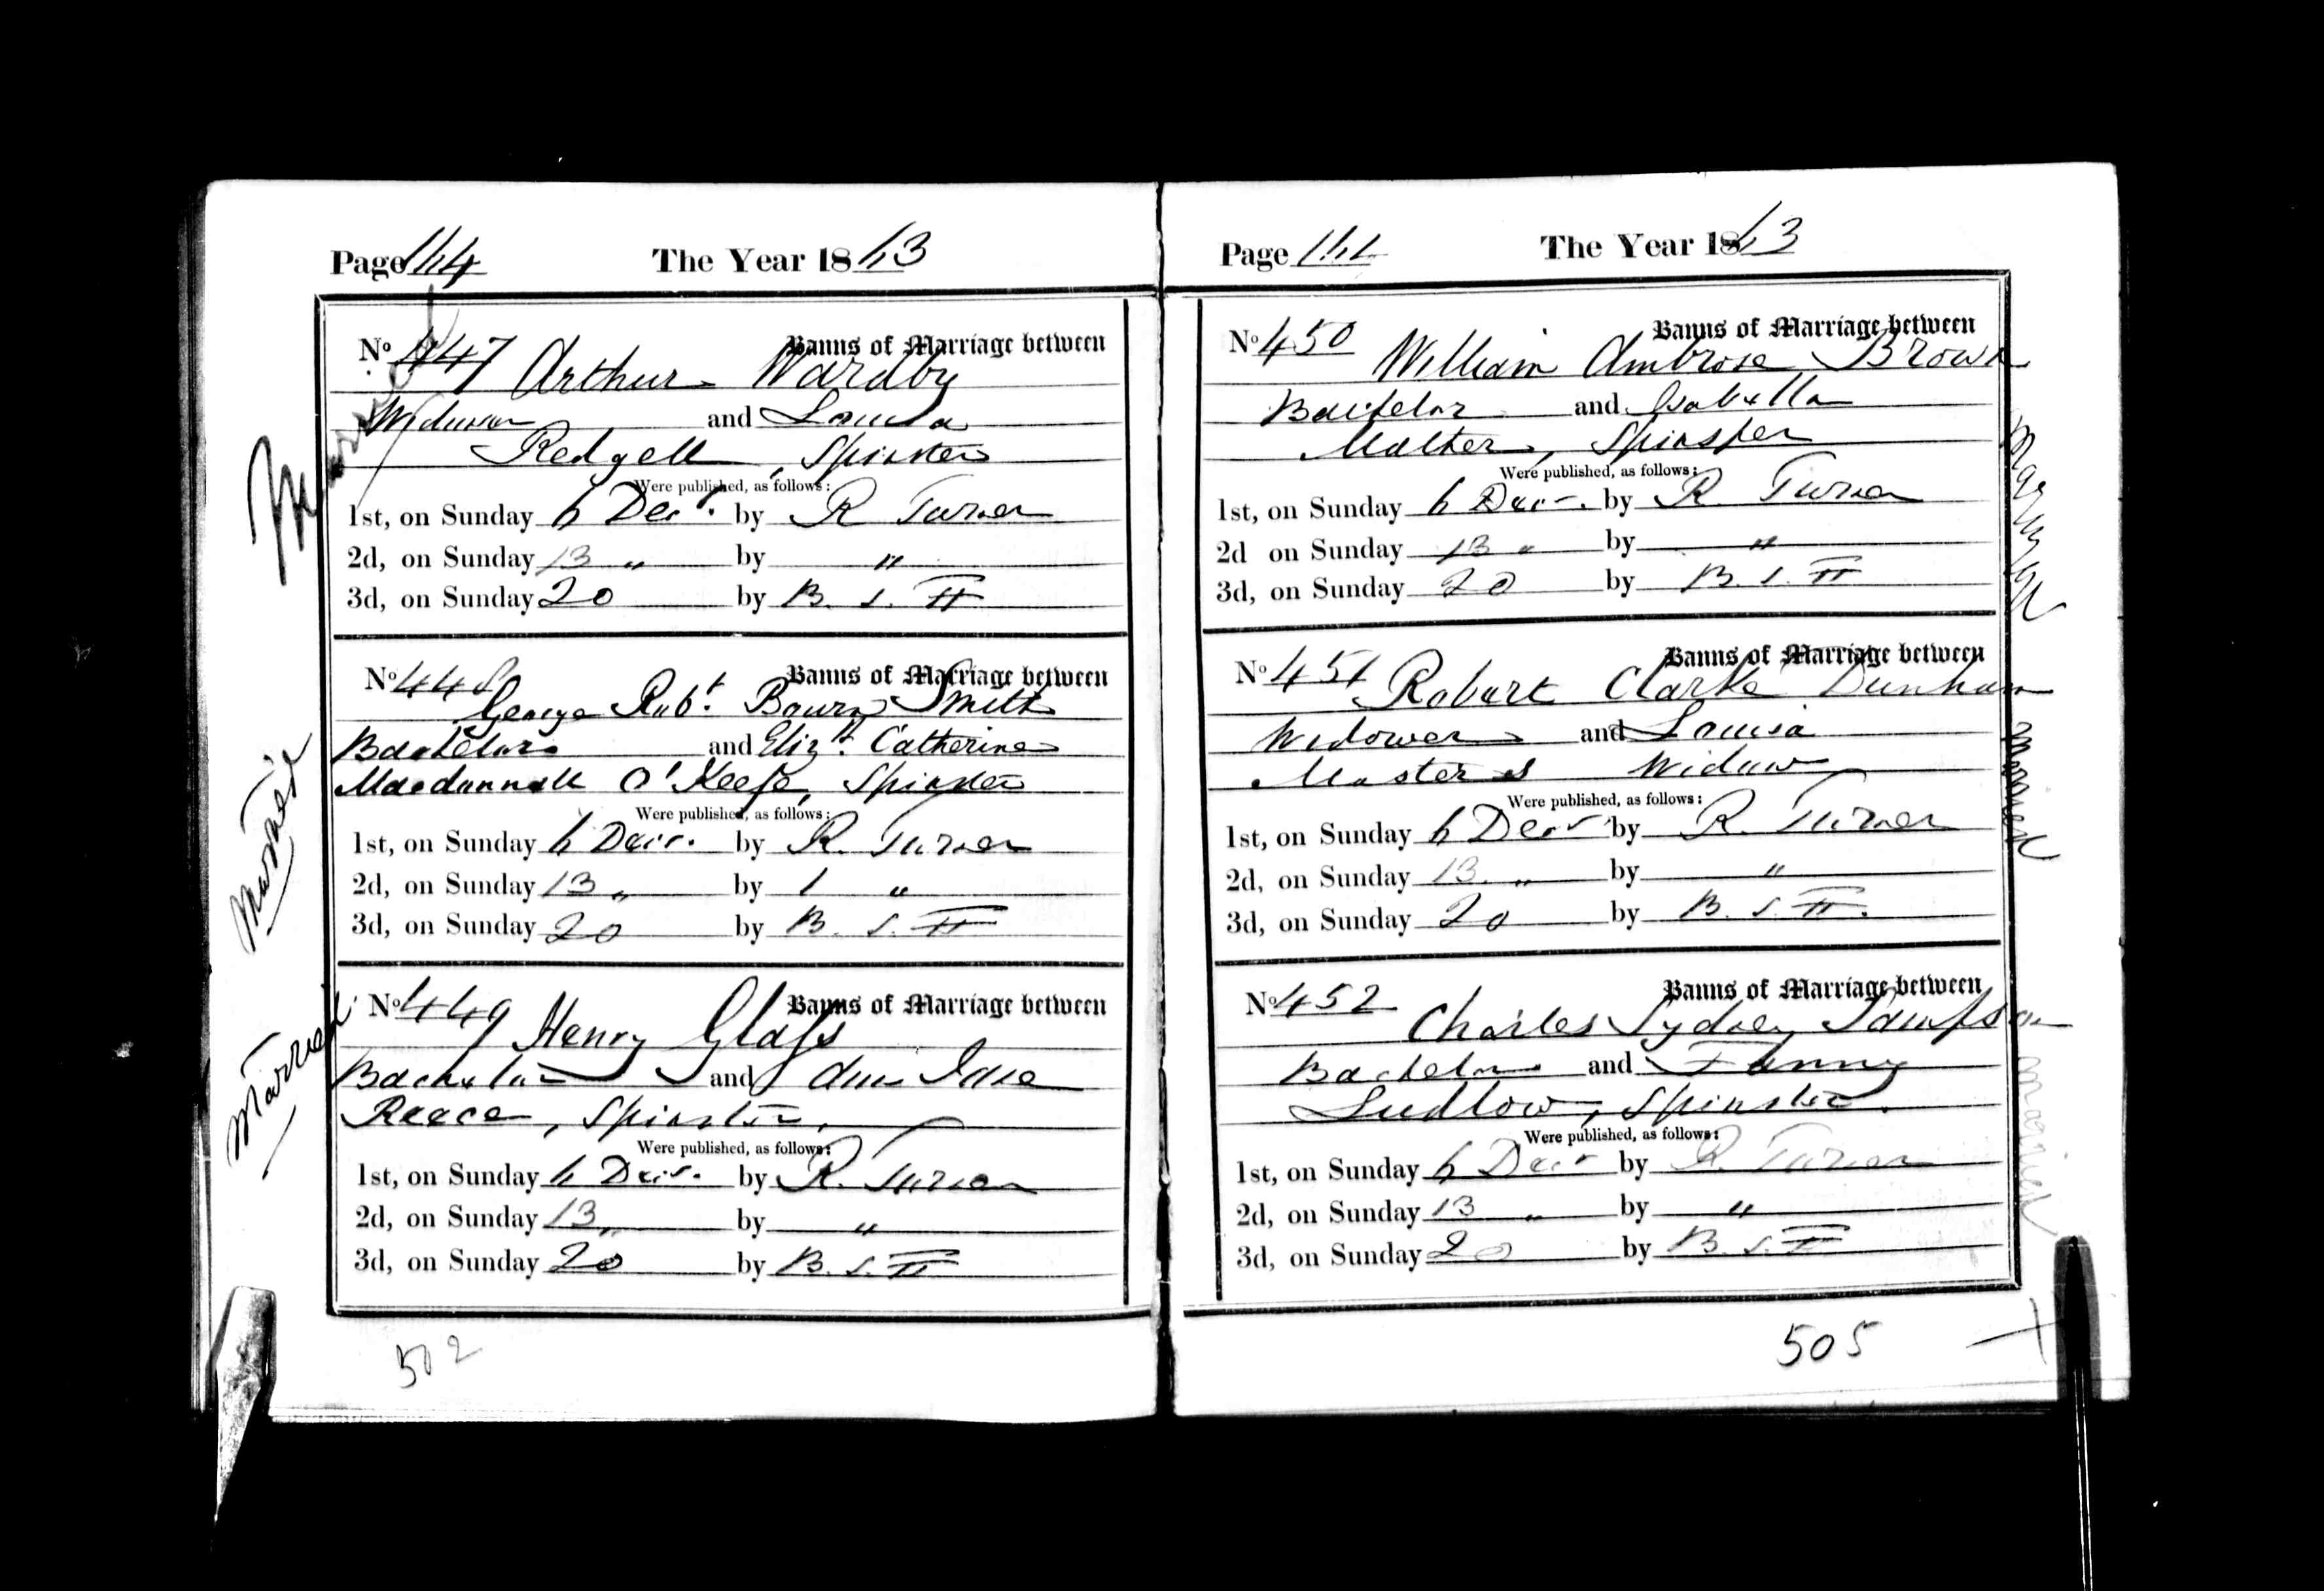 Page 164 The Year 1863
No 447 Banns of Marriage between
Arthur Wardby
Widower and Louisa
Redgell, Spinster
Were published, as follows:
1st, on Sunday 6 Decr. by R Turner
2d, on Sunday 13 " by "
3d, on Sunday 20 by B. S. ff
Married
No 448 Banns of Marriage between
George Robt. Bourn Smith
Bachelor and Elizth. Catherine
Macdonnell O'Keefe, Spinster
Were published, as follows:
1st, on Sunday 6 Decr. by R. Turner
2d, on Sunday 13 " by "
3d, on Sunday 20 by B. S. ff
Married
No 449 Banns of Marriage between
Henry Glass
Bachelor and Ann Jane
Reece, Spinster.
Were published, as follows:
1st, on Sunday 6 Decr. by R. Turner
2d, on Sunday 13 " by "
3d, on Sunday 20 by B. S. ff
Married
502
Page The Year 1863
No 450 Banns of Marriage between
William Ambrose Brown
Bachelor and Isabella
Malther, Spinster
Were published, as follows:
1st, on Sunday 6 Decr. by R. Turner
2d on Sunday 13 " by "
3d, on Sunday 20 by B. S. ff
Married
No 451 Banns of Marriage between
Robert Clarke Dunham
Widower and Louisa
Masters Widow
Were published, as follows:
1st, on Sunday 6 Decr by R. Turner
2d, on Sunday 13. " by "
3d, on Sunday 20 by B. S. ff.
Married
No 452 Banns of Marriage between
Charles Sydney Sampson
Bachelor and Fanny
Ludlow, Spinster.
Were published, as follows:
1st, on Sunday 6 Decr by R. Turner
2d, on Sunday 13 " by "
3d, on Sunday 20 by B. S. ff
Married
505